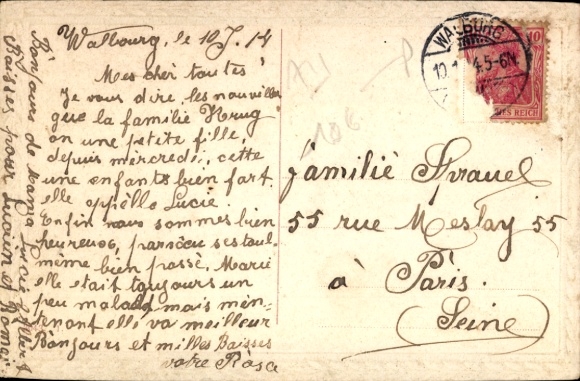 Walbourg, le 10 J. 14
Mes cher toutes
Je vous dire, les nouvelles
que la familie Krug
on une petite fille,
depuis mercredi, cette
une enfants bien fart.
elle appèlle Lucie.
Enfin nous sommes bien
heureuse,
même bien passé, Marie
elle était toujours un
peu malade mais mén-
tenont elle va meilleur
Bonjours et milles Baisses
votre Rosa
Bonjours de Mama Lucie Albert
Baisses pour Lucien et Roman
WALBURG
10.1 4.5-6N
10
HES REICH
familie Strauel
55 rue Meslay 55
à Pàris.
(Seine)